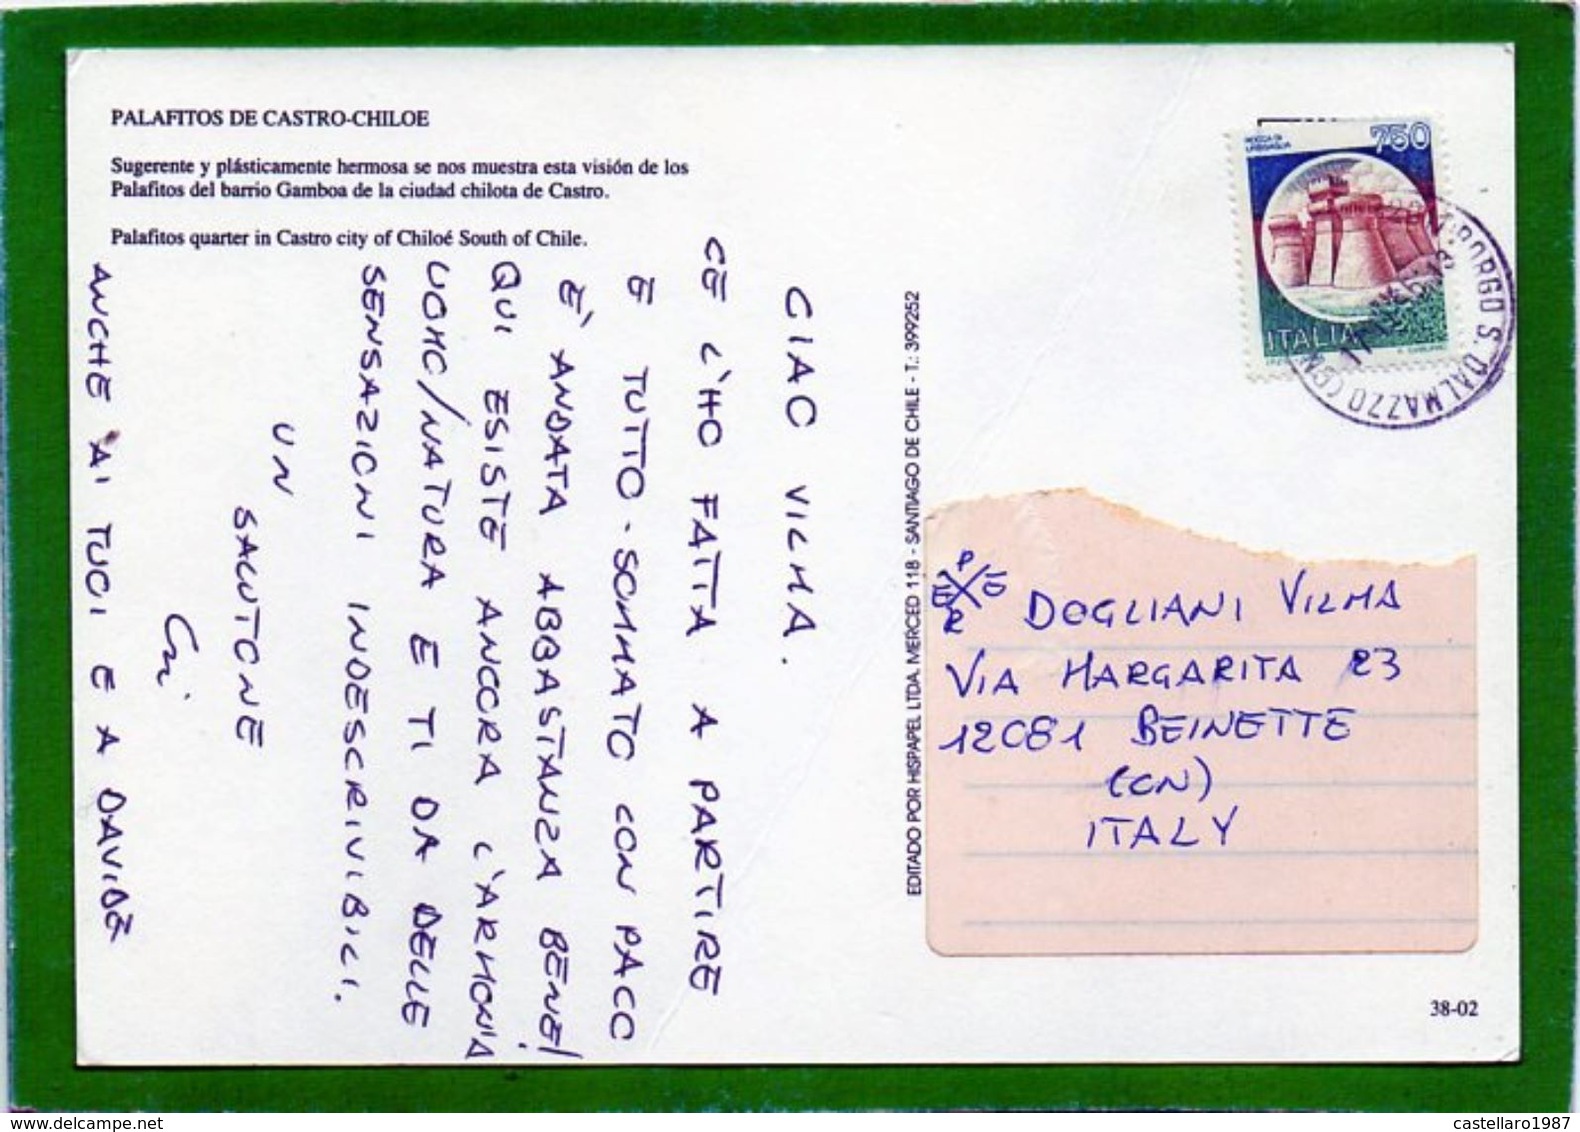 PALAFITOS DE CASTRO-CHILOE
Sugerente y plásticamente hermosa se nos muestra esta visión de los
Palafitos del barrio Gamboa de la ciudad chilota de Castro.
Palafitos quarter in Castro city of Chiloé South of Chile.
CIAO VILMA.
CE L'HO FATTA A PARTIRE
E TUTTO-SOMMATO CON PACO
E' ANDATA ABBASTANZA BENE!
QUI ESISTE ANCORA L'ARMONIA
UOMO/NATURA E TI DA DELLE
SENSAZIONI INDESCRIVIBILI.
UN
SALUTONE
ANCHE AI TUOI E A DAVIDE
EDITADO POR HISPAPEL LTDA. MERCED 118 - SANTIAGO DE CHILE - T.: 399252
750
ROCCA DI
URBISAGLIA
ITALIA
BORGO S. DALMAZZO (CN)
PER
DOGLIANI VILMA
VIA MARGARITA 23
12081 BEINETTE
(CN)
ITALY
38-02
castellaro1987